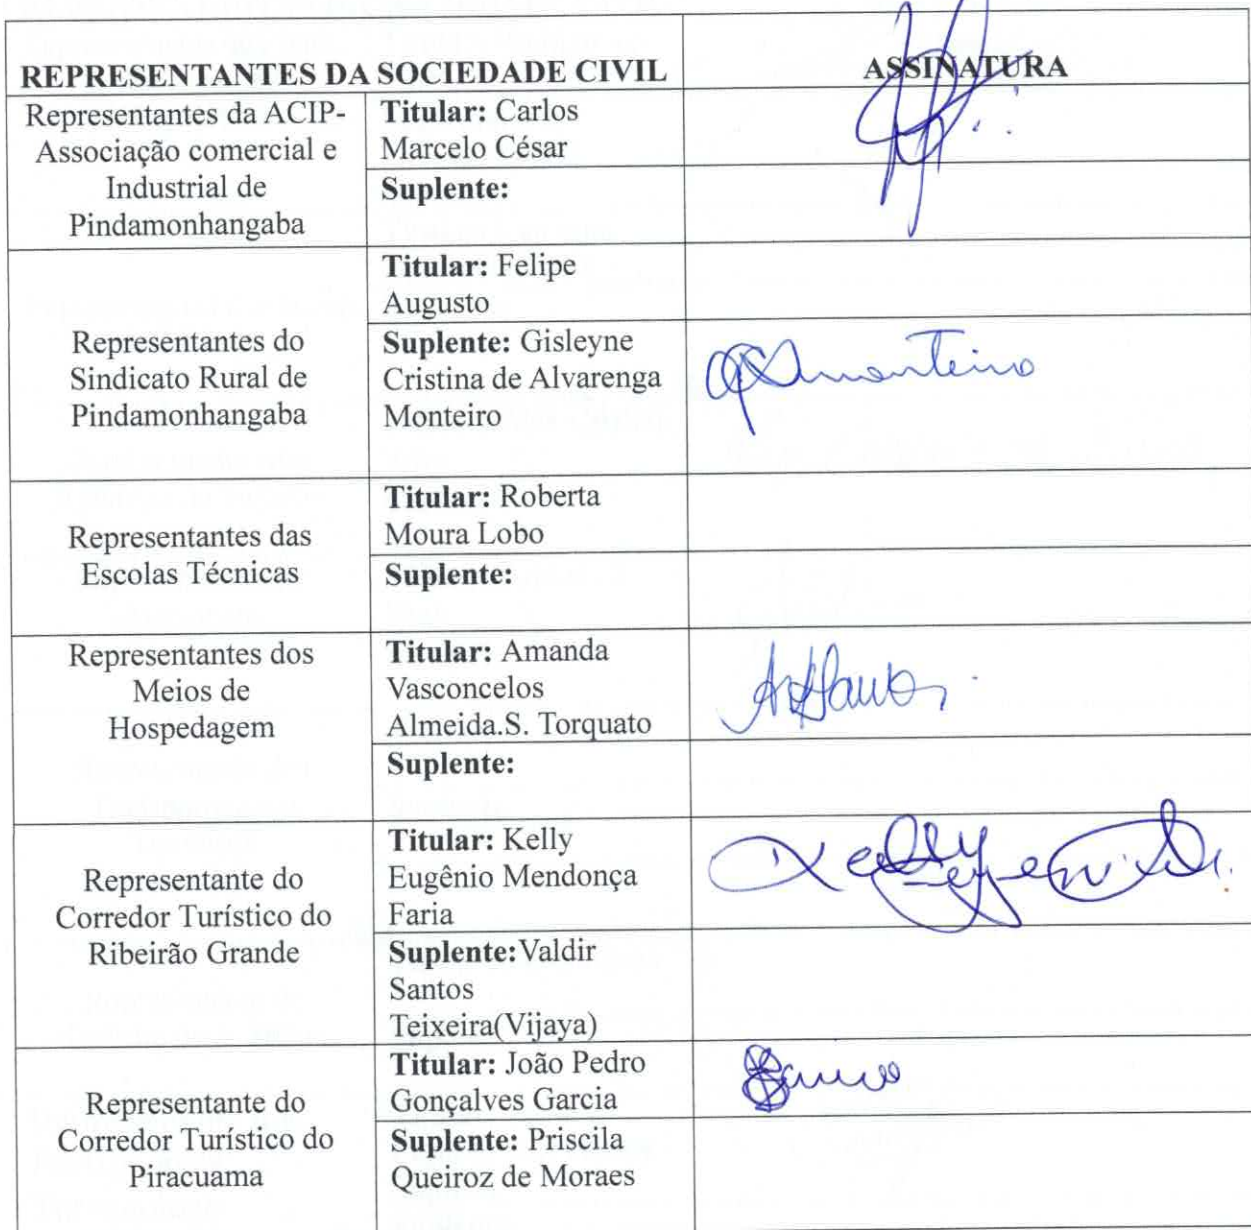 REPRESENTANTES DA SOCIEDADE CIVIL
ASSINATURA
Representantes da ACIP-
Associação comercial e
Industrial de
Pindamonhangaba
Titular: Carlos
Marcelo César
Suplente:
Representantes do
Sindicato Rural de
Pindamonhangaba
Titular: Felipe
Augusto
Suplente: Gisleyne
Cristina de Alvarenga
Monteiro
Representantes das
Escolas Técnicas
Titular: Roberta
Moura Lobo
Suplente:
Representantes dos
Meios de
Hospedagem
Titular: Amanda
Vasconcelos
Almeida.S. Torquato
Suplente:
Representante do
Corredor Turístico do
Ribeirão Grande
Titular: Kelly
Eugênio Mendonça
Faria
Kelly
Suplente:Valdir
Santos
Teixeira(Vijaya)
Representante do
Corredor Turístico do
Piracuama
Titular: João Pedro
Gonçalves Garcia
Suplente: Priscila
Queiroz de Moraes